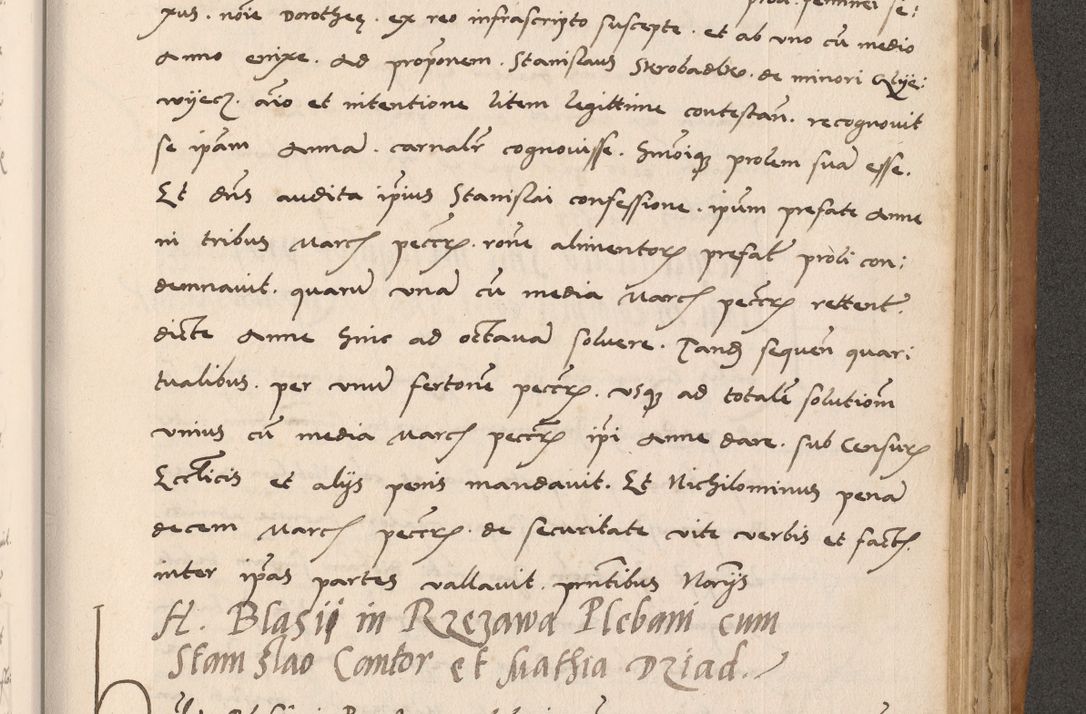 prol. feminei se:
xus. nōie Dorotheę. ex reo infrascripto suscepte. et ab vno cū medio
Anno enixe. Ad propōnem. Stanislaus Skrobadlo. de minori
wyecz. aīo et intentione litem legittime contestan̄. recognouit
se ip̄am Annā. carnalr̄ cognouisse. hmōiqȝ prolem suā esse.
Et dn̄s audita ip̄ius Stanislai confessione. ip̄um prefate Anne
in tribus March pecc̄rꝝ. rōne alimentorꝝ prefat̄ proli con:
demnauit. quarū vnā cū media March pecc̄rꝝ
dicte Anne hinc ad octauā soluere. Tandē sequen̄ quar:
tualibus. per vnū fertonē pecc̄rꝝ. vsqȝ ad totalē solutiōm
vnius cū media March pecc̄rꝝ ip̄i Anne dare. sub Censurꝝ
Eccl̄icis et alijs penis mandauit. Et Nichilominus penā
decem March pecc̄rꝝ. de securitate vite verbis et fact.
inter ip̄as partes vallauit. pn̄tibus Norijs
H. Blasij in Rzezawa Plebani cum
Stanislao Cantor et Mathia Dziad.